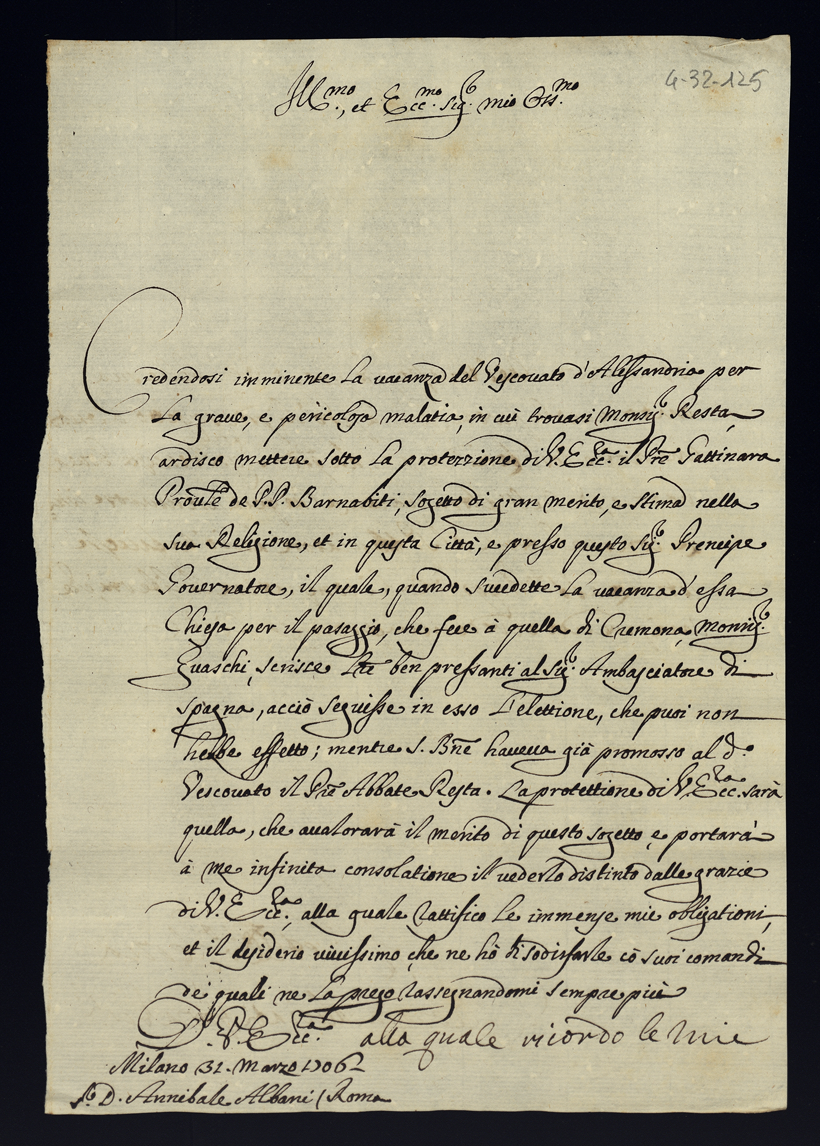 4-32-125
Ill.mo, et Ecc.mo Sig.r mio Oss.mo
Credendosi imminente la vacanza del Vescovato d'Alessandria per
la grave, e pericolosa malatia, in cui trovasi Monsig.r Resta,
ardisco mettere sotto la protezzione di V. Ecc.za il Prē Gattinara
Proūle de P.P. Barnabiti, sogetto di gran merito, e stima nella
sua Religione, et in questa Città, e presso questo Sig.r Prencipe
Governatore, il quale, quando succedette la vacanza d'essa
Chiesa per il pasaggio, che fece à quella di Cremona Monsig.r
Guaschi, scrisse Ltrē ben pressanti al Sig.r Ambasciatore di
Spagna, acciò seguisse in esso l'elettione, che puoi non
hebbe effetto; mentre S. Bnē haveva già promosso al d.o
Vescovato il Prē Abbate Resta. La protettione di V. Ecc.za sarà
quella, che avalorarà il merito di questo sogetto, e portarà
à me infinita consolatione il vederlo distinto dalle grazie
di V. Ecc.za, alla quale rattifico le immense mie obligationi,
et il desiderio vivissimo che ne hò di sodisfarle cō suoi comandi
de quali ne la prego rassegnandomi sempre più
D. V. Ecc.za alla quale ricordo le mie
Milano 31. Marzo 1706
S.r D. Annibale Albani / Roma